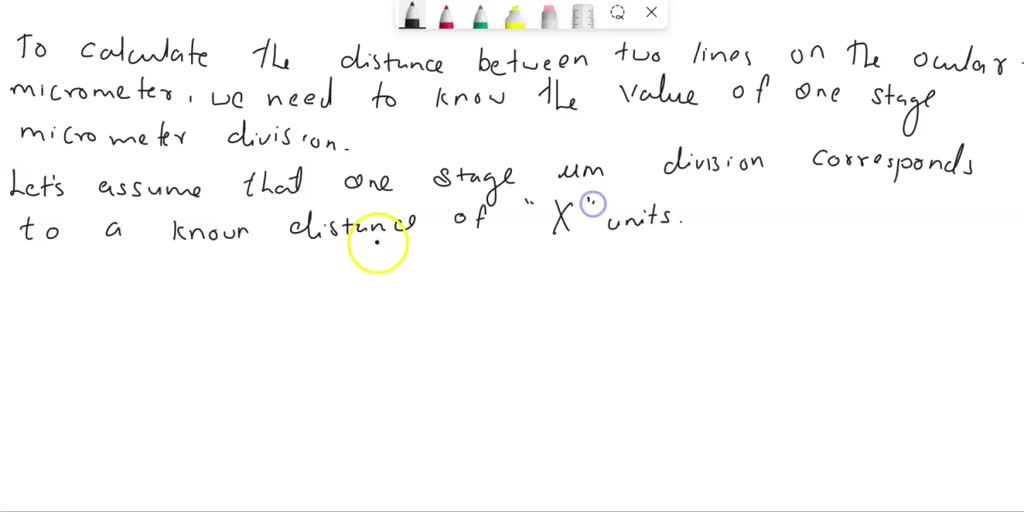 To calculate the distance between two lines on the ocular
micrometer, we need to know the value of one stage
micrometer division.
Let's assume that one stage um division corresponds
to a known distance of "X" units.